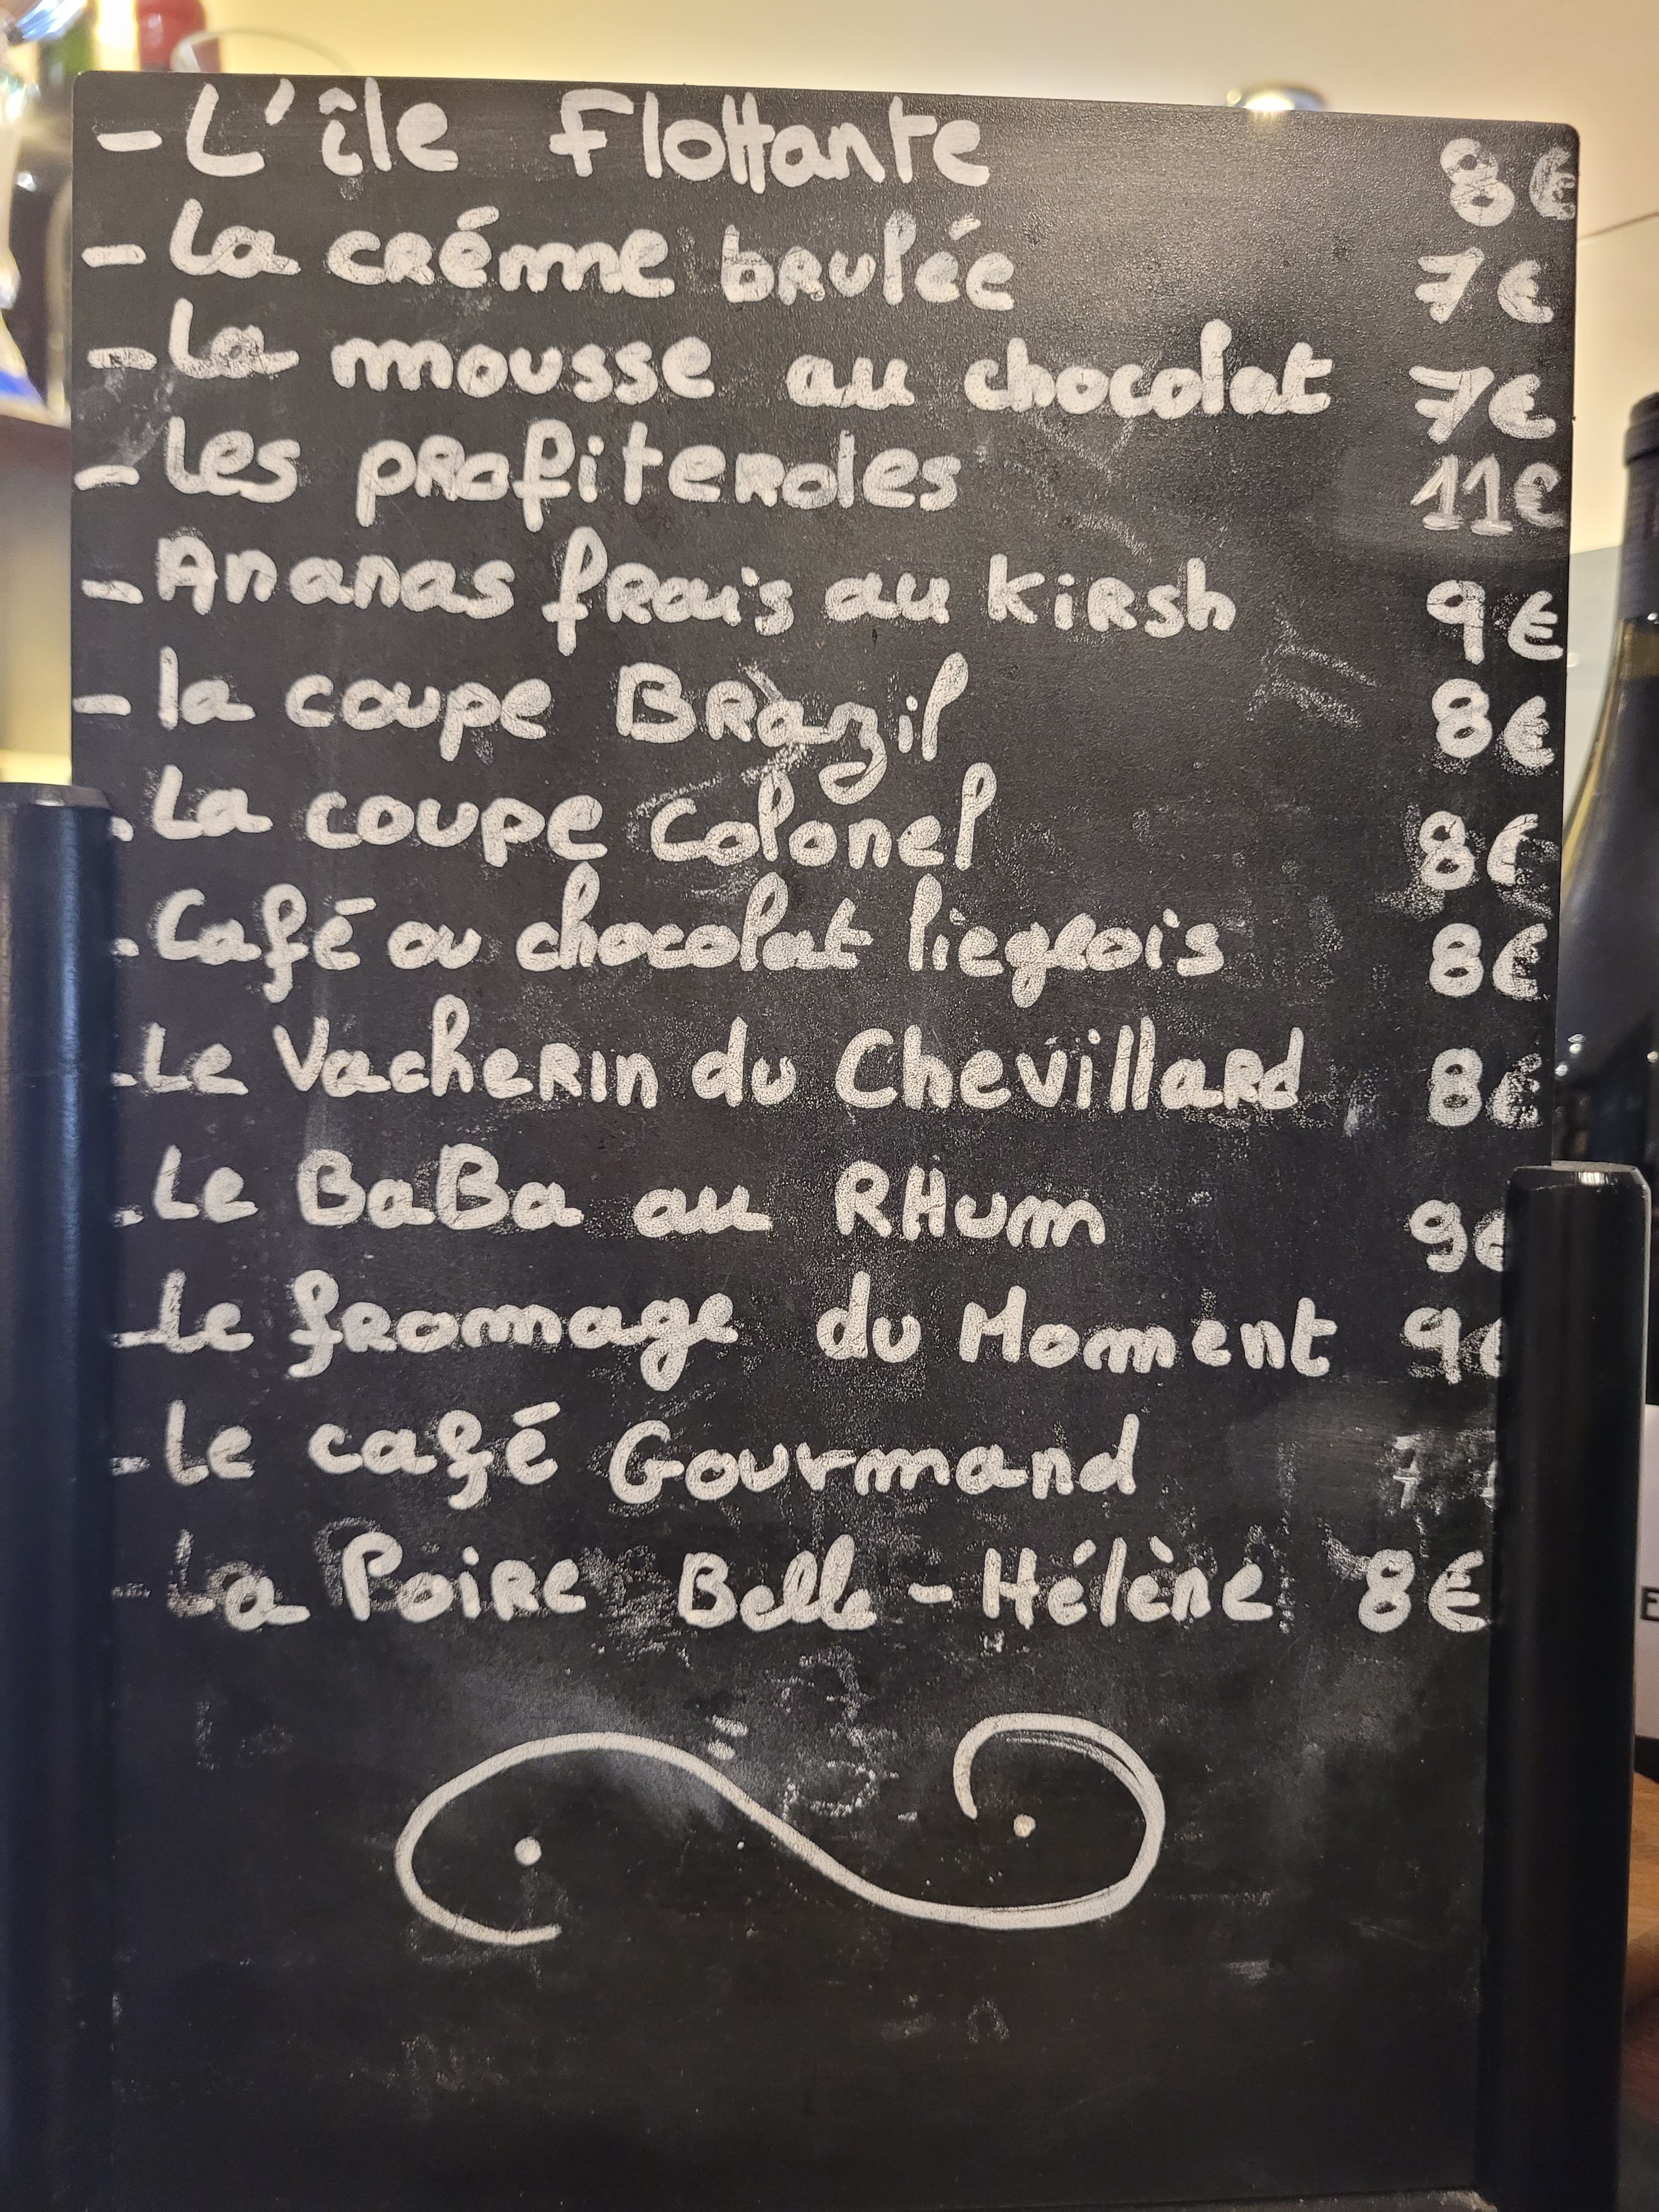 - L'île Flottante 8€
- La créme brulée 7€
- La mousse au chocolat 7€
- Les profiteroles 11€
- Ananas frais au kirsh 9€
- la coupe Brazil 8€
- La coupe Colonel 8€
- Café ou chocolat liegeois 8€
- Le Vacherin du Chevillard 8€
- Le BaBa au RHum 9€
- Le fromage du Moment 9€
- Le café Gourmand
- La Poire Belle-Hélène 8€